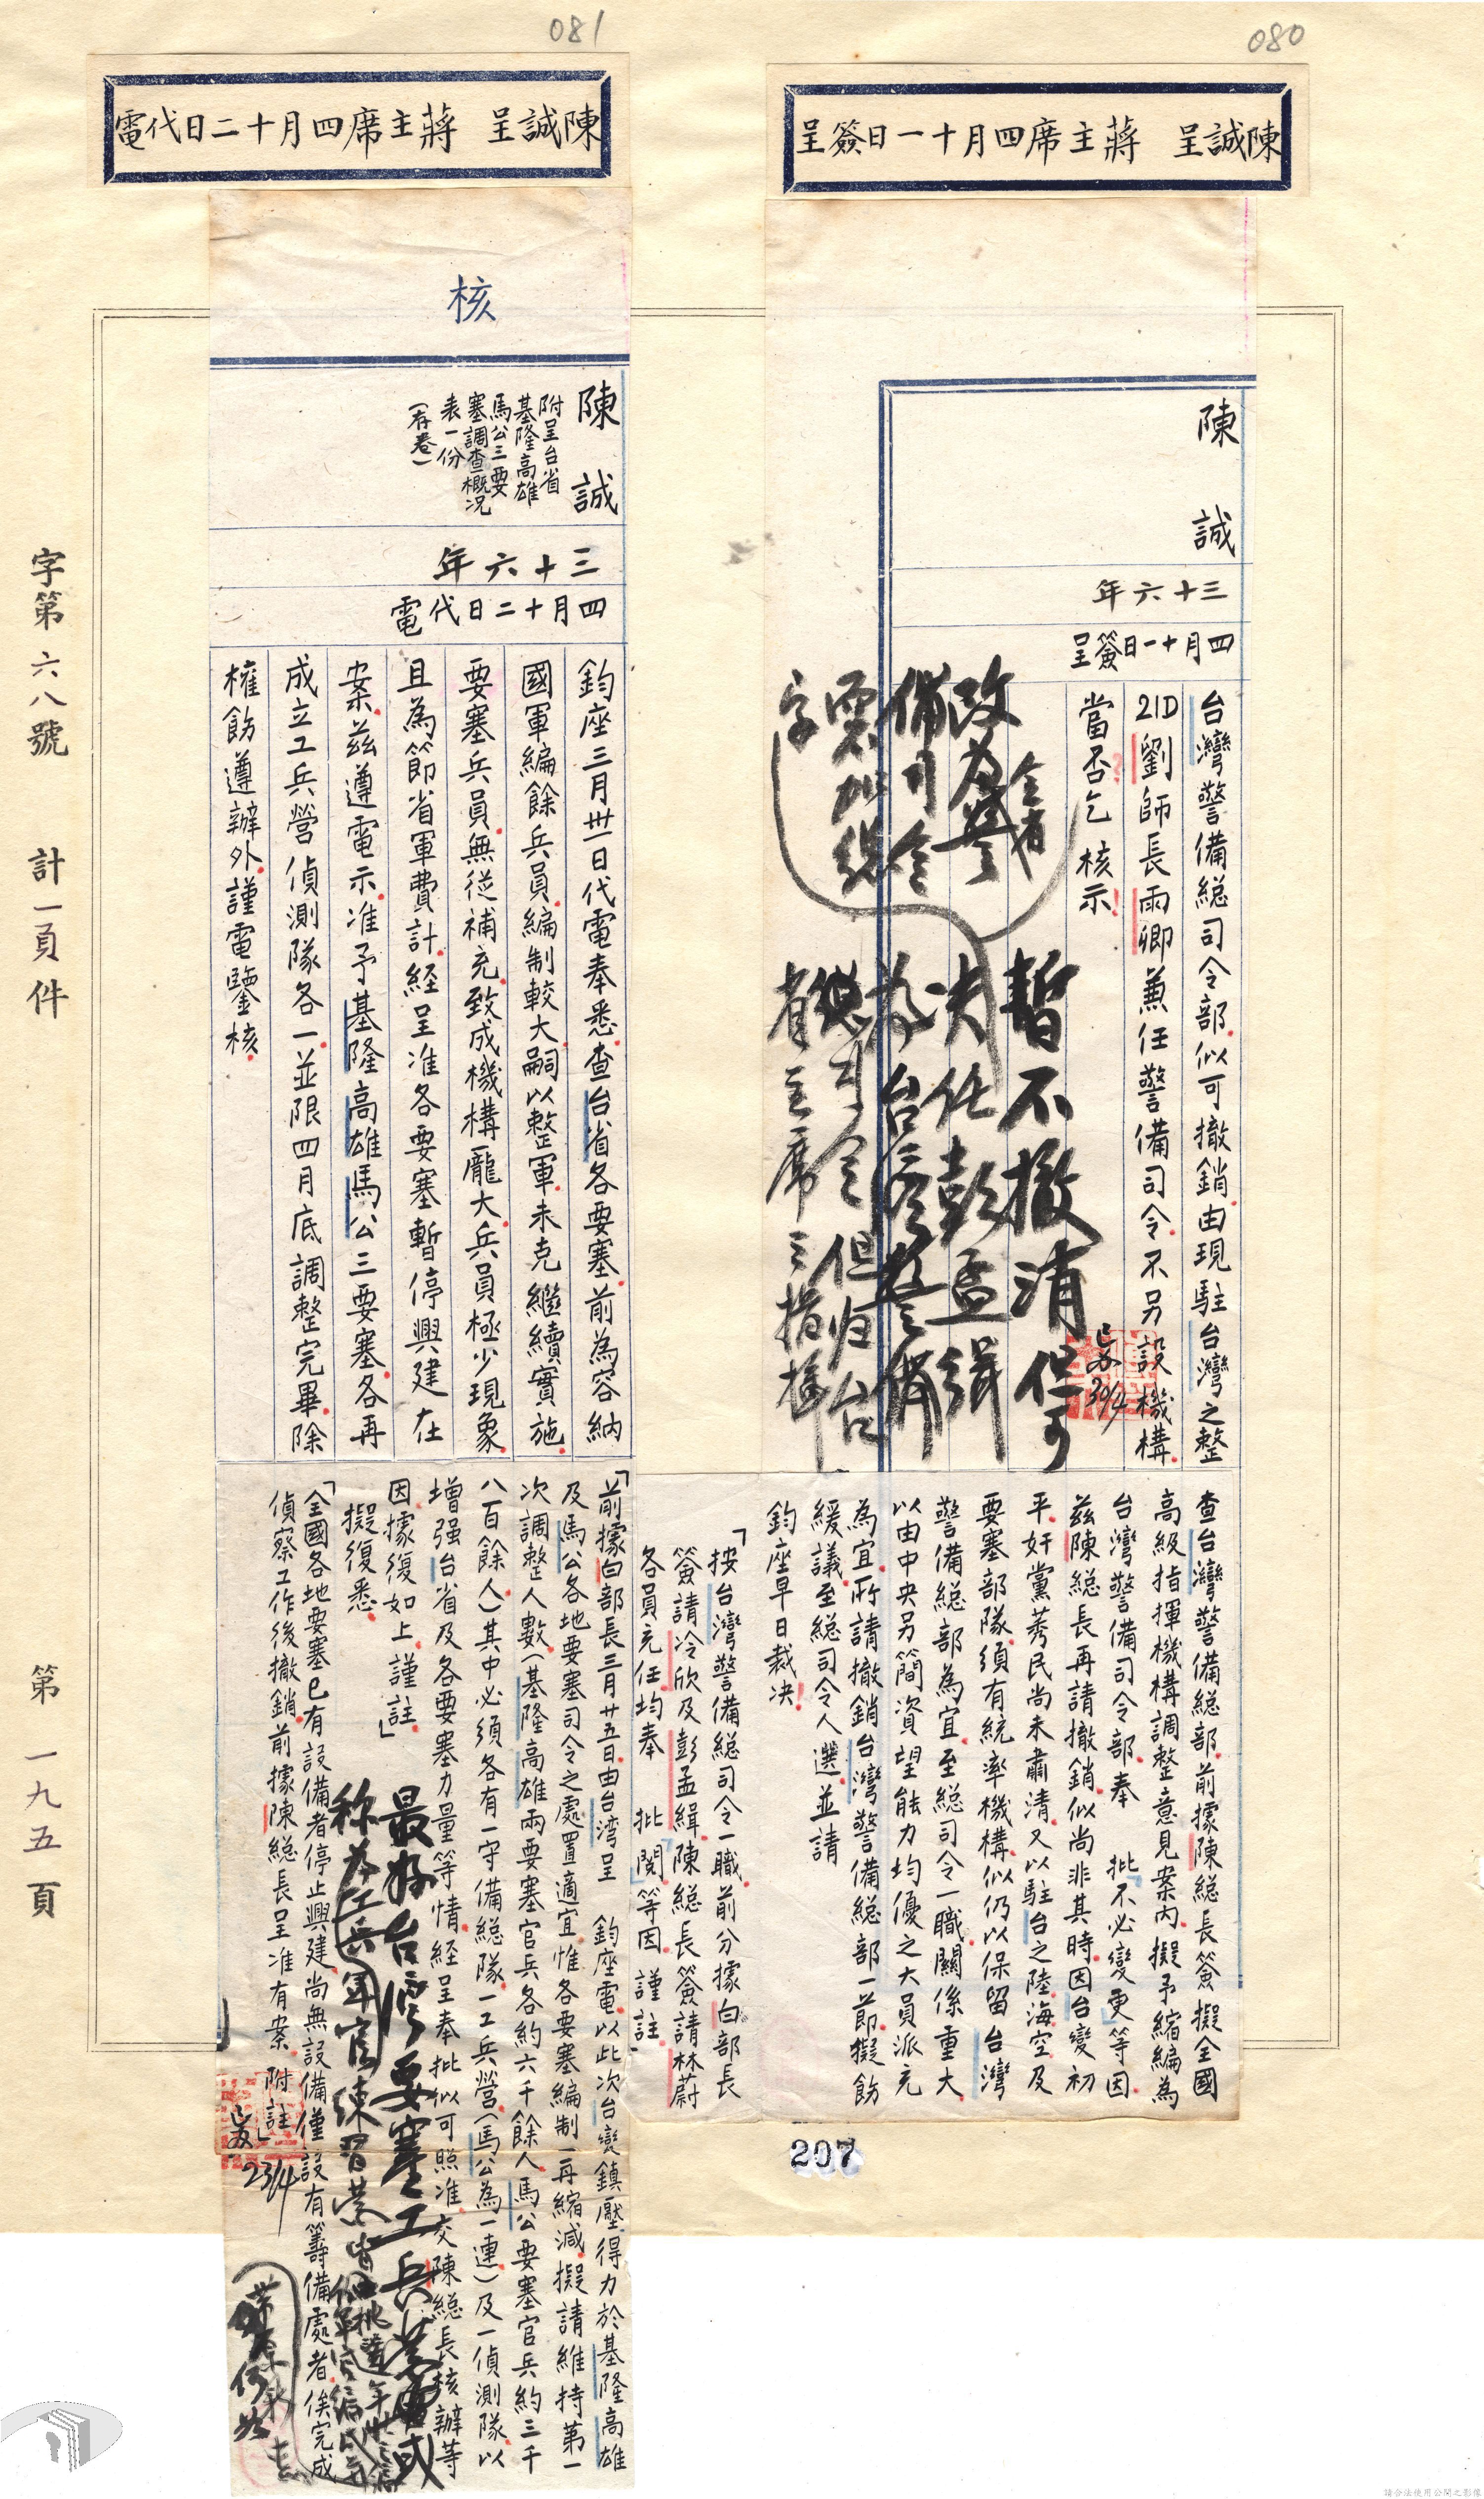 080
陳誠呈 蔣主席四月十一日簽呈
陳 誠
三十六年
四月十一日簽呈
台灣警備總司令部似可撤銷由現駐台灣之整
21D劉師長雨卿兼任警備司令不另設機構
當否乞核示
暫不撤消但可
決任彭孟緝
為台灣警備
總司令但归台
省主席之指揮
改為警
備司令
要加總
字
30/4
查台灣警備總部前據陳總長簽擬全國
高級指揮機構調整意見案內擬予縮編為
台灣警備司令部奉 批不必變更等因
茲陳總長再請撤銷似尚非其時因台變初
平奸黨莠民尚未肅清又以駐台之陸海空及
要塞部隊須有統率機構似仍以保留台灣
警備總部為宜至總司令一職關係重大
以由中央另簡資望能力均優之大員派充
為宜所請撤銷台灣警備總部一節擬飭
緩議至總司令人選並請
鈞座早日裁決
「按台灣警備總司令一職前分據白部長
簽請冷欣及彭孟緝陳總長簽請林蔚
各員充任均奉 批閱等因 謹註」
207
081
陳誠呈 蔣主席四月十二日代電
核
陳 誠
附呈台省
基隆高雄
馬公三要
塞調查概況
表一份
(存卷)
三十六年
四月十二日代電
鈞座三月卅一日代電奉悉查台省各要塞前為容納
國軍編餘兵員編制較大嗣以整軍未克繼續實施
要塞兵員無從補充致成機構龐大兵員極少現象
且為節省軍費計經呈准各要塞暫停興建在
案茲遵電示准予基隆高雄馬公三要塞各再
成立工兵營偵測隊各一並限四月底調整完畢除
權飭遵辦外謹電鑒核
「前據白部長三月廿五日由台湾呈 鈞座電以此次台變鎮壓得力於基隆高雄
及馬公各地要塞司令之處置適宜惟各要塞編制一再縮減擬請維持第一
次調整人數(基隆高雄兩要塞官兵各約六千餘人馬公要塞官兵約三千
八百餘人)其中必須各有一守備總隊一工兵營(馬公為一連)及一偵測隊以
增强台省及各要塞力量等情經呈奉批似可照准交陳總長核辦等
因據復如上謹註」
擬復悉
「全國各地要塞已有設備者停止興建尚無設備僅設有籌備處者俟完成
偵察工作後撤銷前據陳總長呈准有案附註」
最好台灣要塞工兵營
称為工兵軍官練習營
23/4
字第六八號 計一頁件 第一九五頁
請合法使用公開之影像